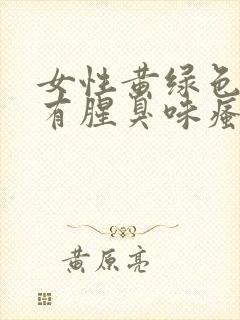 女性黄绿色
有腥臭味瘙
黄原亮